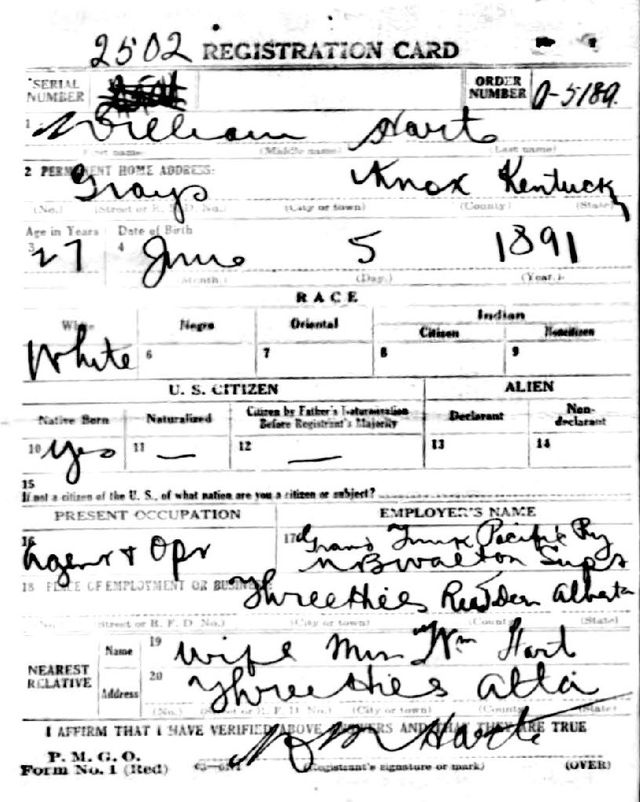 2502 REGISTRATION CARD
SERIAL NUMBER
ORDER NUMBER
0-5189.
1 William Hart
(First name) (Middle name) (Last name)
2 PERMANENT HOME ADDRESS:
Grays Knox Kentucky
(No.) (Street or R. F. D. No.) (City or town) (County) (State)
Age in Years
Date of Birth
3 27
4 June 5 1891
(Month.) (Day.) (Year.)
RACE
White Negro Oriental Indian
Citizen Noncitizen
White 6 7 8 9
U. S. CITIZEN ALIEN
Native Born Naturalized Citizen by Father's Naturalization Before Registrant's Majority Declarant Non-declarant
10 Yes 11 — 12 — 13 14
15
If not a citizen of the U. S., of what nation are you a citizen or subject?
PRESENT OCCUPATION EMPLOYER'S NAME
16 Agent & Opr
17 Grand Trunk Pacific Ry
Supt
18 PLACE OF EMPLOYMENT OR BUSINESS:
Three Hills Alberta
(No.) (Street or R. F. D. No.) (City or town) (County) (State)
NEAREST RELATIVE
Name 19 Wife Mrs Wm Hart
Address 20 Three Hills Alta
(No.) (Street or R. F. D. No.) (City or town) (County) (State)
I AFFIRM THAT I HAVE VERIFIED ABOVE ANSWERS AND THAT THEY ARE TRUE
P. M. G. O.
Form No. 1 (Red)
Wm Hart
(Registrant's signature or mark)
(OVER)